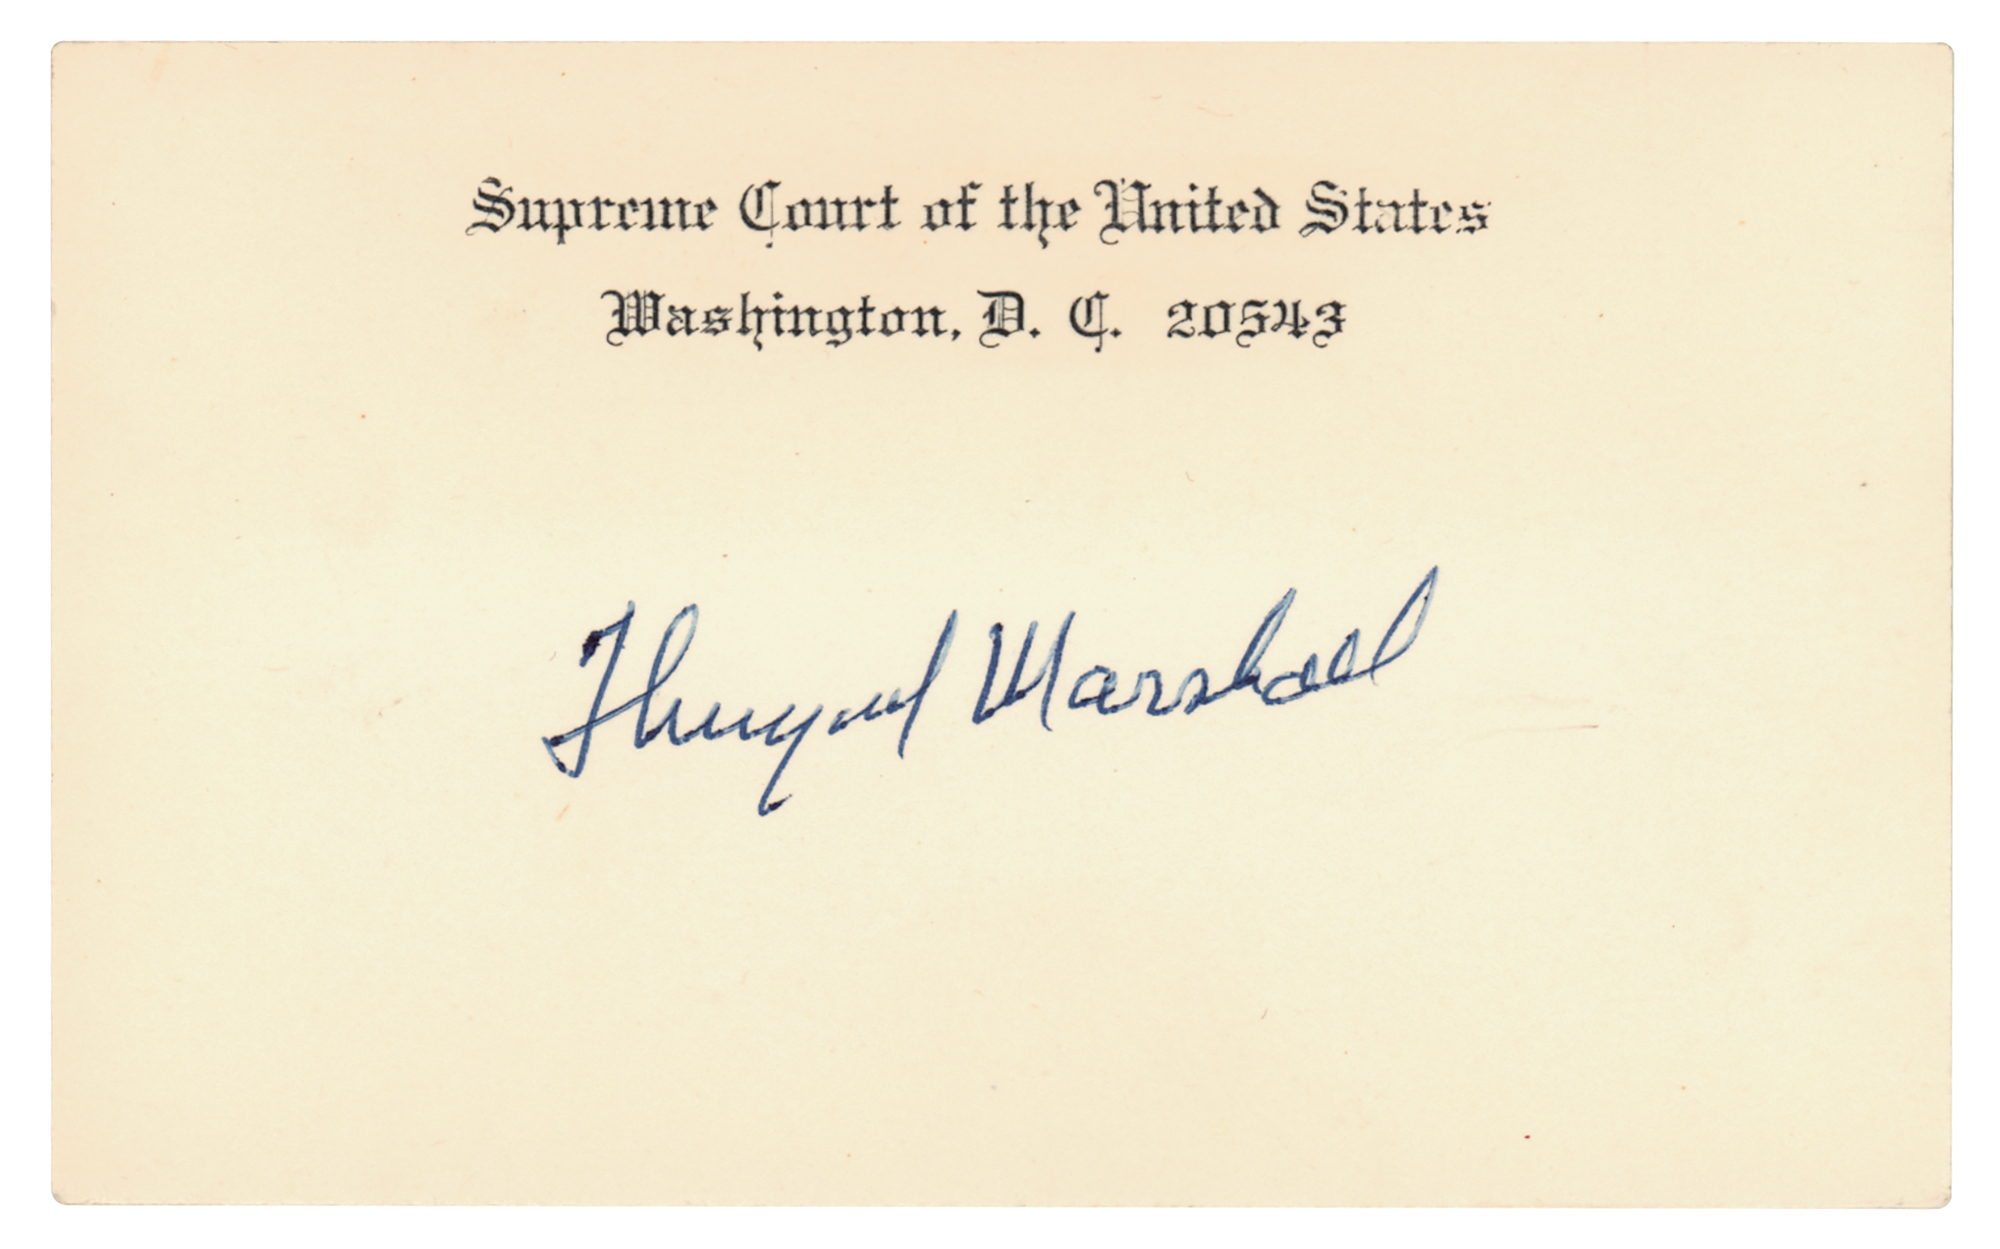 Supreme Court of the United States
Washington, D. C. 20543
Thurgood Marshall